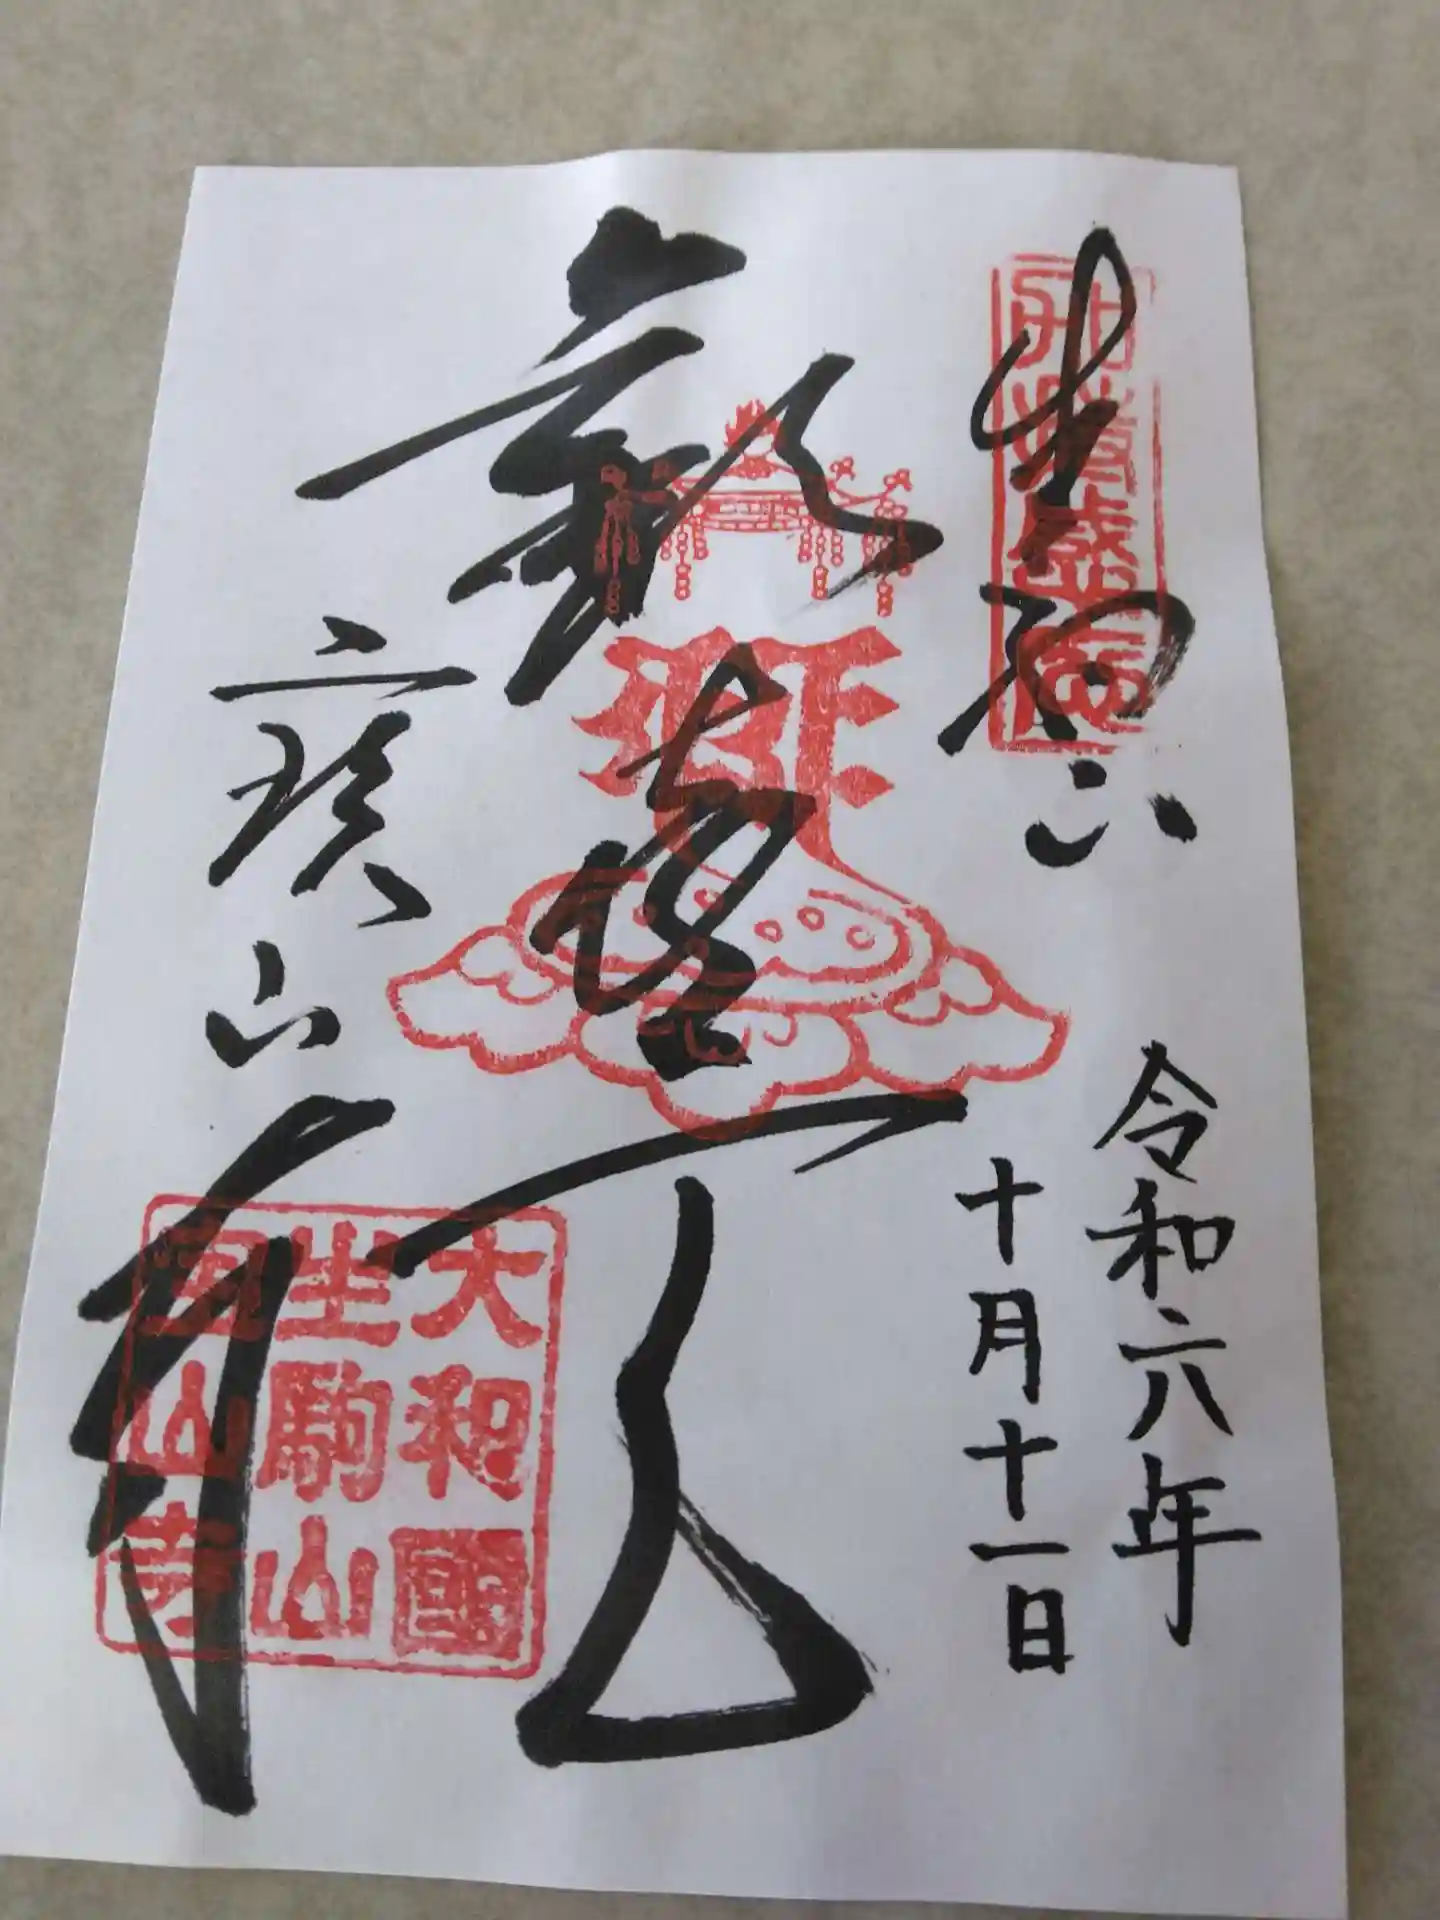 生駒山
令和六年
十月十一日
歡喜天
寳山寺
大和國
生駒山
寳山寺